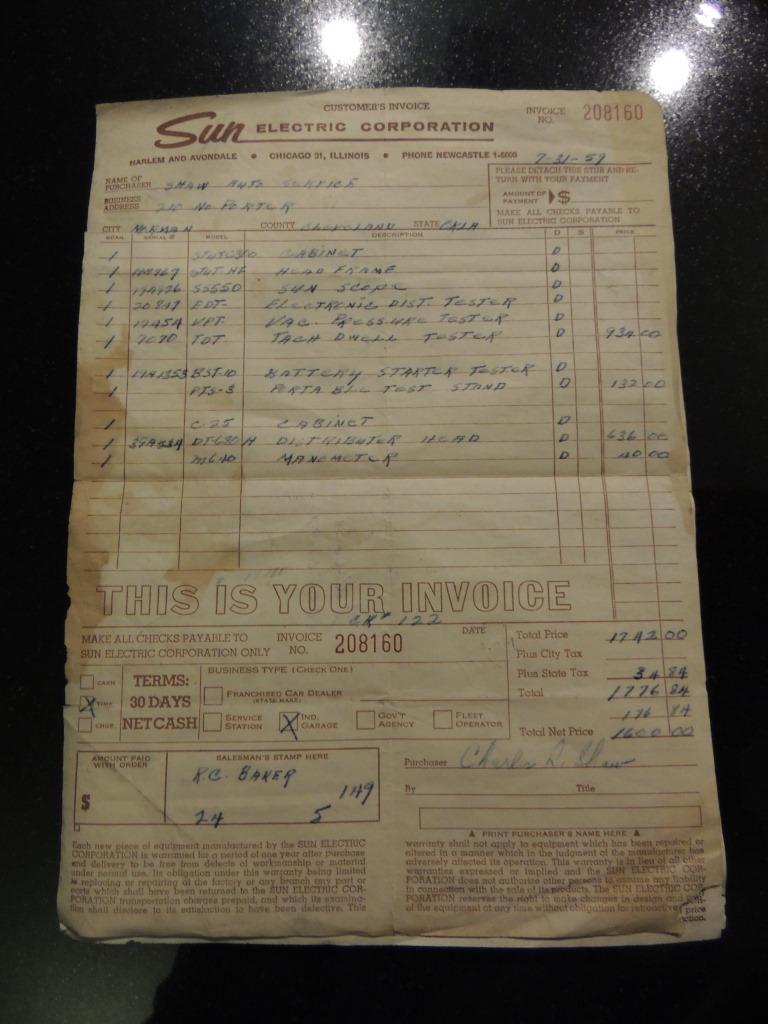 CUSTOMER'S INVOICE
INVOICE NO. 208160
Sun ELECTRIC CORPORATION
HARLEM AND AVONDALE • CHICAGO 31, ILLINOIS • PHONE NEWCASTLE 1-6000
7-31-59
NAME OF PURCHASER SHAW AUTO SERVICE
PLEASE DETACH THIS STUB AND RETURN WITH YOUR PAYMENT
BUSINESS ADDRESS 210 NO PORTER
AMOUNT OF PAYMENT $
MAKE ALL CHECKS PAYABLE TO SUN ELECTRIC CORPORATION
CITY NORMAN COUNTY CLEVELAND STATE OKLA
QUAN. SERIAL # MODEL DESCRIPTION D S PRICE
1 CABINET D
1 HEAD FRAME D
1 SS550 SUN SCOPE D
1 20847 EDT- ELECTRONIC DIST TESTER D
1 17454 VPT- VAC. PRESSURE TESTER D
1 7070 TDT TACH DWELL TESTER D 934 00
1 BST-10 BATTERY STARTER TESTER D
1 PTS-3 PORTABLE TEST STAND D 132 00
1 C-25 CABINET D
1 DT-680 H DISTRIBUTER HEAD D 636 00
1 M640 MANOMETER D 40 00
THIS IS YOUR INVOICE
CK# 122
MAKE ALL CHECKS PAYABLE TO SUN ELECTRIC CORPORATION ONLY
INVOICE NO. 208160
DATE
Total Price 1742 00
Plus City Tax
Plus State Tax 34 84
Total 1776 84
176 84
Total Net Price 1600 00
CASH
X TIME
CHGE.
TERMS:
30 DAYS
NET CASH
BUSINESS TYPE (CHECK ONE)
FRANCHISED CAR DEALER
(STATE MAKE)
SERVICE STATION
X IND. GARAGE
GOV'T AGENCY
FLEET OPERATOR
AMOUNT PAID WITH ORDER
$
SALESMAN'S STAMP HERE
R.C. BAKER
1149
24 5
Purchaser Charles R. Shaw
By Title
▲ PRINT PURCHASER'S NAME HERE ▲
Each new piece of equipment manufactured by the SUN ELECTRIC
CORPORATION is warranted for a period of one year after purchase
and delivery to be free from defects of workmanship or material
under normal use. Its obligation under this warranty being limited
to replacing or repairing at the factory or any branch any part or
parts which shall have been returned to the SUN ELECTRIC COR-
PORATION transportation charges prepaid, and which its examina-
tion shall disclose to its satisfaction to have been defective. This
warranty shall not apply to equipment which has been repaired or
altered in a manner which in the judgment of the manufacturer has
adversely affected its operation. This warranty is in lieu of all other
warranties expressed or implied and the SUN ELECTRIC COR-
PORATION does not authorize other persons to assume any liability
in connection with the sale of its products. The SUN ELECTRIC COR-
PORATION reserves the right to make changes in design and
of the equipment at any time without obligation for retroactive